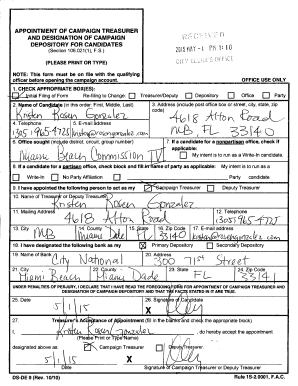 APPOINTMENT OF CAMPAIGN TREASURER
AND DESIGNATION OF CAMPAIGN
DEPOSITORY FOR CANDIDATES
(Section 106.021(1), F.S.)
(PLEASE PRINT OR TYPE)
RECEIVED
2015 MAY -1 PM 1:10
CITY CLERK'S OFFICE
NOTE: This form must be on file with the qualifying
officer before opening the campaign account.
OFFICE USE ONLY
1. CHECK APPROPRIATE BOX(ES):
Initial Filing of Form Re-filing to Change: Treasurer/Deputy Depository Office Party
2. Name of Candidate (in this order: First, Middle, Last)
Kristen Rosen Gonzalez
3. Address (include post office box or street, city, state, zip code)
4618 Alton Road
MB, FL 33140
4. Telephone
5. E-mail address
6. Office sought (include district, circuit, group number)
Miami Beach Commission IV
7. If a candidate for a nonpartisan office, check if applicable:
My intent is to run as a Write-In candidate.
8. If a candidate for a partisan office, check block and fill in name of party as applicable: My intent is to run as a
Write-In No Party Affiliation Party candidate.
9. I have appointed the following person to act as my Campaign Treasurer Deputy Treasurer
10. Name of Treasurer or Deputy Treasurer
Kristen Rosen Gonzalez
11. Mailing Address
4618 Alton Road
12. Telephone
13. City
MB
14. County
15. State
FL
16. Zip Code
33140
17. E-mail address
18. I have designated the following bank as my Primary Depository Secondary Depository
19. Name of Bank
City National
20. Address
300 71st Street
21. City
Miami Beach
22. County
Miami Dade
23. State
FL
24. Zip Code
33141
UNDER PENALTIES OF PERJURY, I DECLARE THAT I HAVE READ THE FOREGOING FORM FOR APPOINTMENT OF CAMPAIGN TREASURER AND DESIGNATION OF CAMPAIGN DEPOSITORY AND THAT THE FACTS STATED IN IT ARE TRUE.
25. Date
5/1/15
26. Signature of Candidate
X
27. Treasurer's Acceptance of Appointment (fill in the blanks and check the appropriate block)
I, Kristen Rosen Gonzalez, do hereby accept the appointment
(Please Print or Type Name)
designated above as: Campaign Treasurer Deputy Treasurer.
5/1/15
X
Date
Signature of Campaign Treasurer or Deputy Treasurer
DS-DE 9 (Rev. 10/10)
Rule 1S-2.0001, F.A.C.